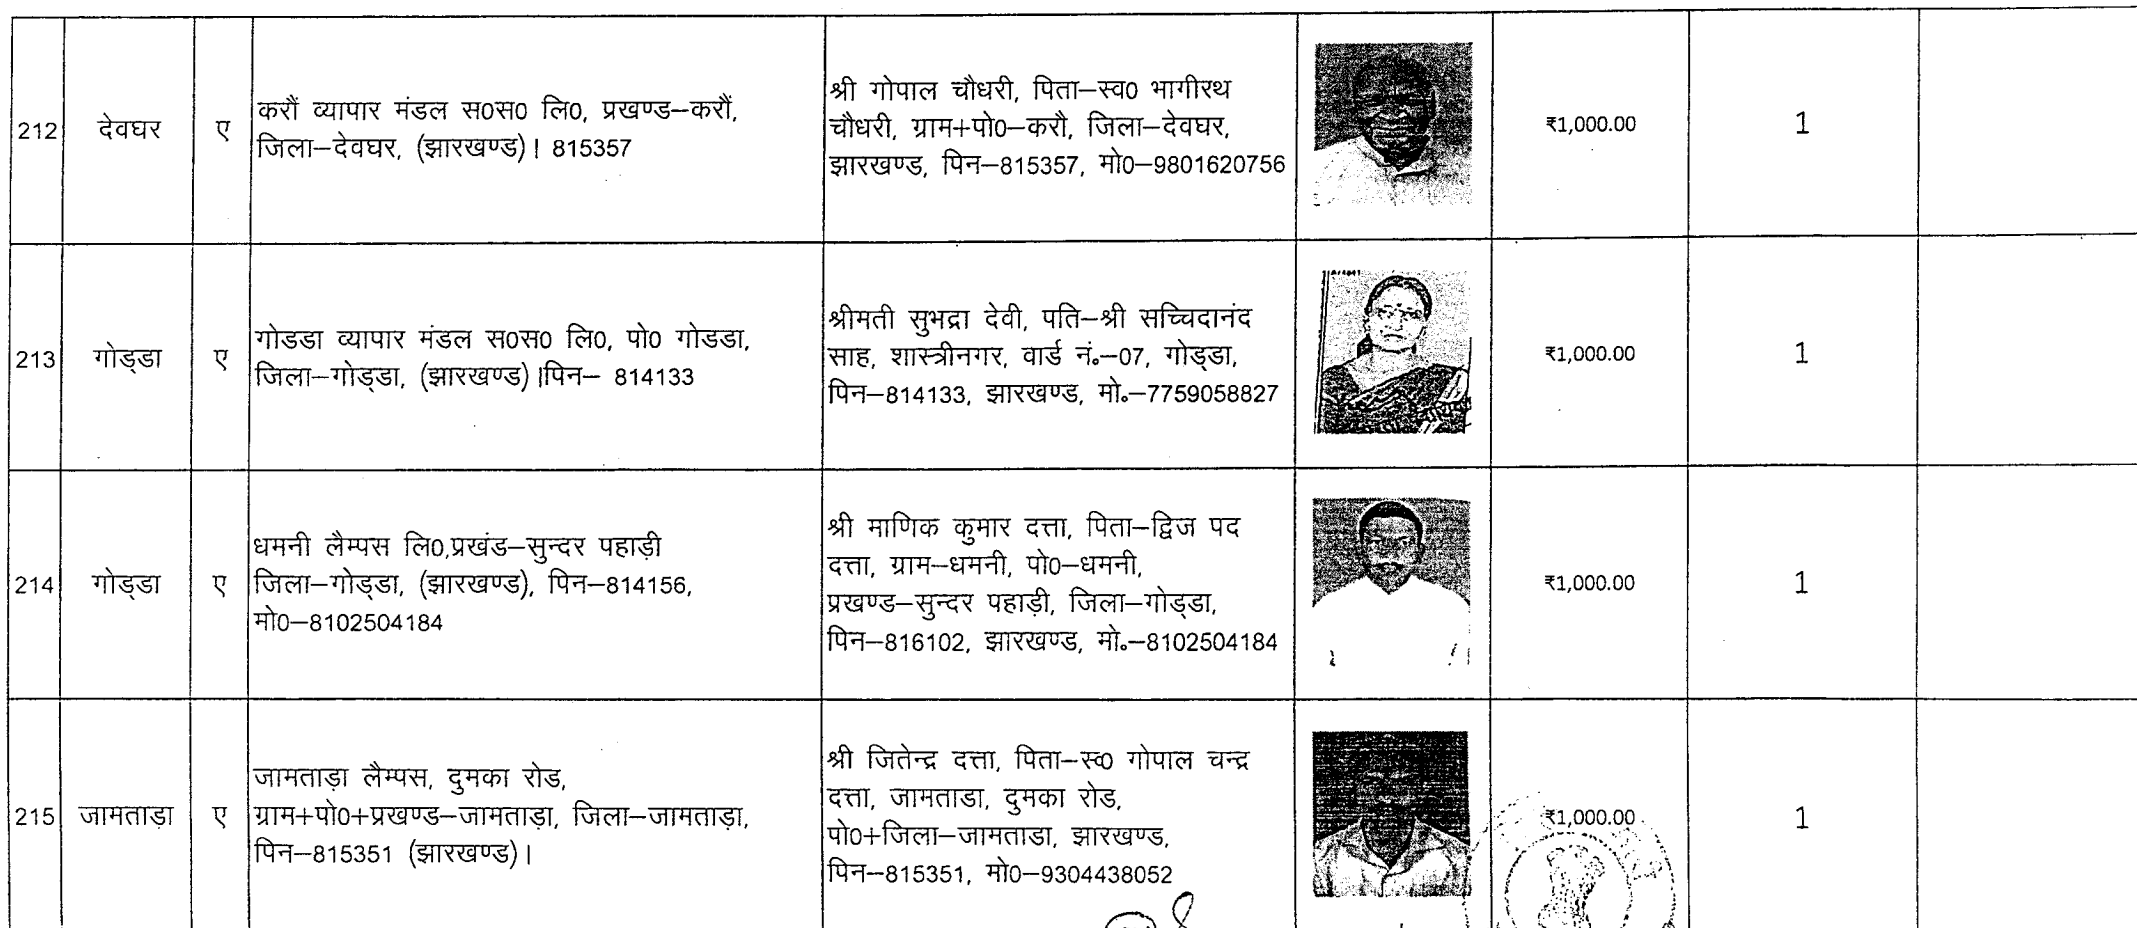 212
देवघर
ए
करौं व्यापार मंडल स0स0 लि0, प्रखण्ड–करौं,
जिला–देवघर, (झारखण्ड)। 815357
श्री गोपाल चौधरी, पिता–स्व0 भागीरथ
चौधरी, ग्राम+पो0–करौ, जिला–देवघर,
झारखण्ड, पिन–815357, मो0–9801620756
₹1,000.00
1
213
गोड्डा
ए
गोडडा व्यापार मंडल स0स0 लि0, पो0 गोडडा,
जिला–गोड्डा, (झारखण्ड)।पिन– 814133
श्रीमती सुभद्रा देवी, पति–श्री सच्चिदानंद
साह, शास्त्रीनगर, वार्ड नं॰–07, गोड्डा,
पिन–814133, झारखण्ड, मो॰–7759058827
₹1,000.00
1
214
गोड्डा
ए
धमनी लैम्पस लि0,प्रखंड–सुन्दर पहाड़ी
जिला–गोड्डा, (झारखण्ड), पिन–814156,
मो0–8102504184
श्री माणिक कुमार दत्ता, पिता–द्विज पद
दत्ता, ग्राम–धमनी, पो0–धमनी,
प्रखण्ड–सुन्दर पहाड़ी, जिला–गोड्डा,
पिन–816102, झारखण्ड, मो॰–8102504184
₹1,000.00
1
215
जामताड़ा
ए
जामताड़ा लैम्पस, दुमका रोड,
ग्राम+पो0+प्रखण्ड–जामताड़ा, जिला–जामताड़ा,
पिन–815351 (झारखण्ड)।
श्री जितेन्द्र दत्ता, पिता–स्व0 गोपाल चन्द्र
दत्ता, जामताडा, दुमका रोड,
पो0+जिला–जामताडा, झारखण्ड,
पिन–815351, मो0–9304438052
₹1,000.00
1